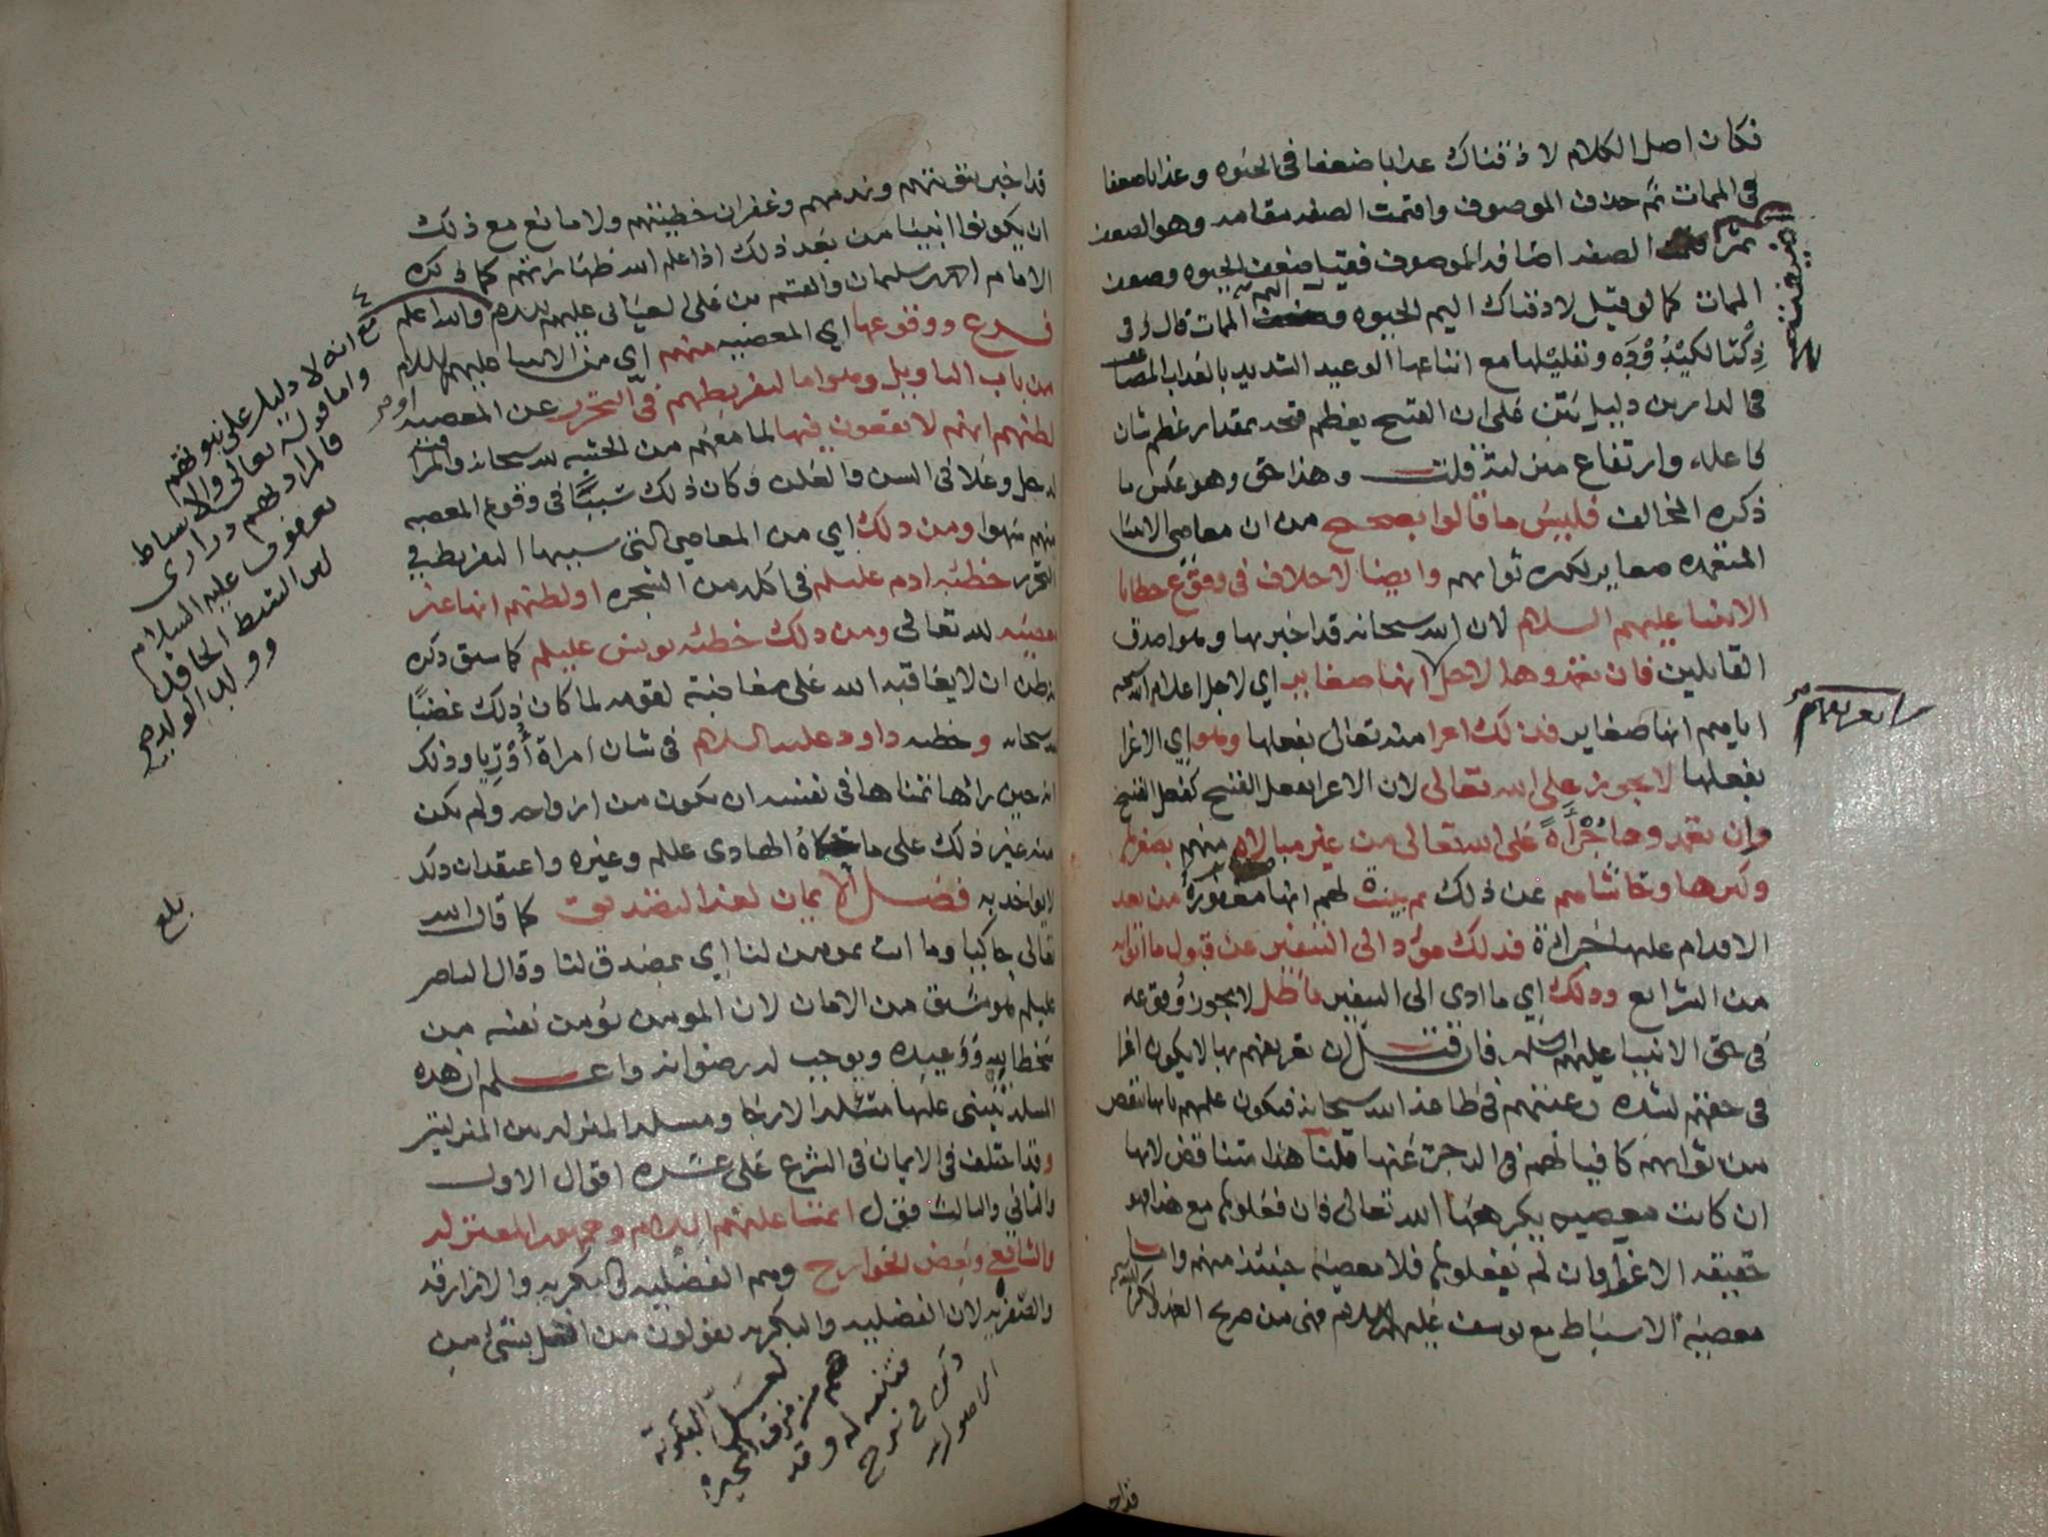 فكان اصل الكلام لا ذقناك عذابا ضعفا في الحيوه وعذابا ضعفا
في الممات ثم حذف الموصوف واقيمت الصفه مقامه وهو الضعف
ثم الصفه اضافه الموصوف فقيل ضعف الحيوه وضعف
الممات كما لو قيل لاذقناك اليم الحيوه واليم الممات قال و في
ذكر الكيدوده وتقليلها مع اتباعها الوعيد الشديد بالعذاب المضاعف
في الدارين دليل بين على ان القبيح يعظم قبحه بمقدار عظم شان
فاعله وارتفاع منزلته قلت وهذا حق وهو عكس ما
ذكره المخالف فليس ما قالوا بصحيح من ان معاصي الانبيا
المتعمده صغاير لكثره ثوابهم وايضا لا خلاف في وقوع خطايا
الانبيا عليهم السلام لان الله سبحانه قد اخبر بها وهو اصدق
القايلين فان تعمدوها لاجل انها صغاير اي لاجل اعلام الله سبحانه
اياهم انها صغاير فذلك اغرا منه تعالى بفعلها وهو اي الاغرا
بفعلها لا يجوز على الله تعالى لان الاغرا بفعل القبيح كفعل القبيح
وان تعمدوها جرأة على الله تعالى من غير مبالاه منهم بصغرها
وكبرها وحاشاهم عن ذلك ثم بينت لهم انها مغفورة من بعد
الاقدام عليها جراءة فذلك مؤد الى التنفير عن قبول ما اتوا به
من الشرائع وذلك اي ما ادى الى التنفير باطل لا يجوز وقوعه
في حق الانبيا عليهم السلام فان قيل ان تعريفهم بها لا يكون اغرا
في حقهم لشده رغبتهم في طاعة الله سبحانه فيكون علمهم بانها تنقص
من ثوابهم كافيا لهم في الزجر عنها قلنا هذا متناقض لانها
ان كانت معصيه يكرهها الله تعالى فان فعلوها مع هذا فهو
حقيقه الاغرا وان لم يفعلوها فلا معصية حينئذ منهم واما
معصية الاسباط مع يوسف عليه السلام فهي من صريح العمد ولكن الله سبحانه
تعريفهم
قد اخبر
قد اخبر بتوبتهم وندمهم وغفران خطيئتهم ولا مانع مع ذلك
ان يكونوا انبيا من بعد ذلك اذا علم الله طهارتهم كما ذكره
الامام احمد بن سليمان والقسم بن علي العياني عليهم السلام والله اعلم
فرع ووقوعها اي المعصيه منهم اي من الانبيا عليهم السلام
من باب التاويل وهو اما لتفريطهم في التحرز عن المعصيه او
لظنهم انهم لا يقعون فيها لما معهم من الخشيه لله سبحانه والمراقبه
له جل وعلا في السر والعلن وكان ذلك سببا في وقوع المعصيه
منهم سهوا ومن ذلك اي من المعاصي التي سببها التفريط في
التحرز خطئه ادم عليلم في اكله من الشجره او لظنهم انها غير
معصيه لله تعالى ومن ذلك خطئه يونس عليلم كما سبق ذكره
بظن ان لا يعاقبه الله على مغاضبة لقومه لما كان ذلك غضبا
لله سبحانه وخطيه داود عليه السلام في شان امراة أوريا وذلك
انه حين راها تمناها في نفسه ان تكون من ازواجه ولم يكن
منه غير ذلك على ما حكاه الهادي عليلم وغيره واعتقد ان ذلك
لا يؤاخذ به فصل الايمان لغة التصديق كما قال الله
تعالى حاكيا وما انت بمومن لنا اي بمصدق لنا وقال الناصر
عليلم هو مشتق من الامان لان المومن يؤمن نفسه من
سخط الله ووعيده ويوجب له رضوانه واعلم ان هذه
المسله تبنى عليها مسئله الارجا ومسله المنزله بين المنزلتين
وقد اختلف في الايمان في الشرع على عشره اقوال الاول
والثاني والثالث فقول ائمتنا عليهم السلام وجمهور المعتزله
والشافعي وبعض الخوارج وهم الفضليه والبكريه والازارقه
والصفريه لان الفضليه والبكريه يقولون من اخل بشي من
مع انه لا دليل على نبوتهم
واما قوله تعالى والاسباط
فالمراد بهم ذراري
يعقوب عليه السلام
لان السبط الحافد
وولد الولد
بلغ
لعل البكرية
هم من فرق المجبره